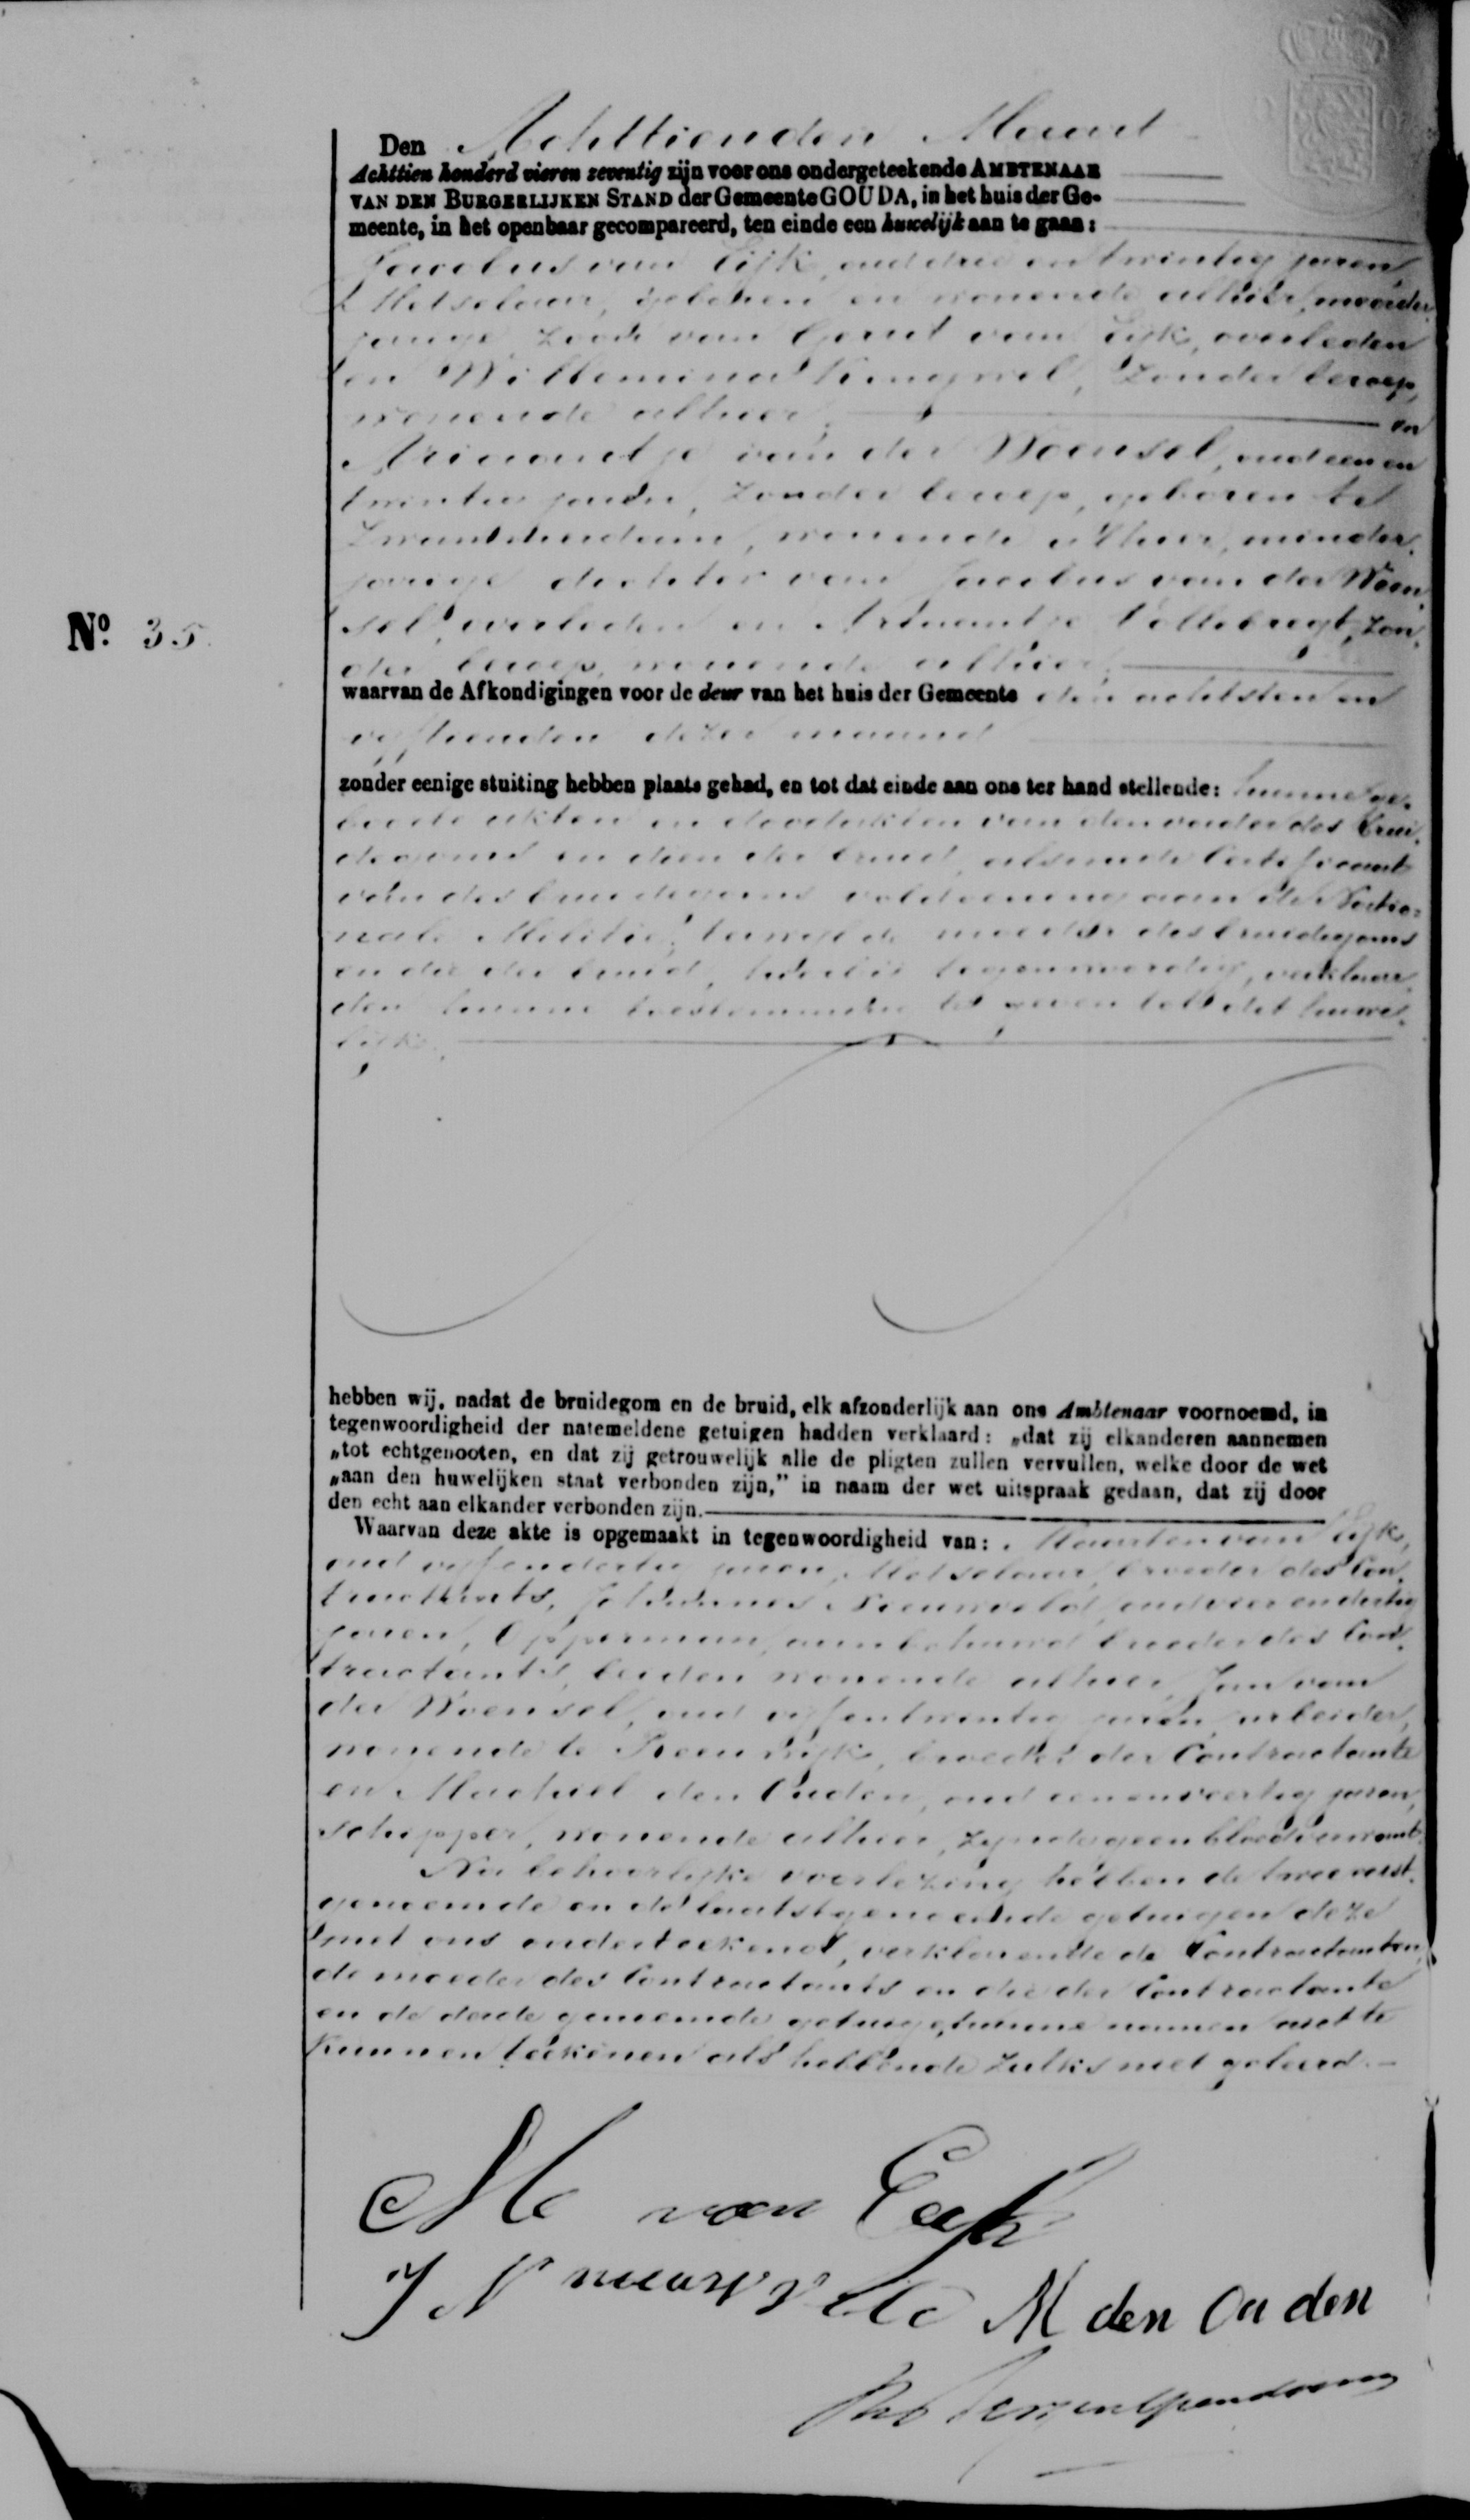 Den Achttienden Maart
Achttien honderd vier en zeventig zijn voor ons ondergeteekende AMBTENAAR
VAN DEN BURGERLIJKEN STAND der Gemeente GOUDA, in het huis der Ge-
meente, in het openbaar gecompareerd, ten einde een huwelijk aan te gaan:
Jacobus van Eijk, oud drie en twintig jaren
Metselaar, geboren en wonende alhier, meerder-
jarige zoon van Gerrit van Eijk, overleden
en Willemina, zonder beroep,
wonende alhier, en
Ariaantje van der Woensel, oud een en
twintig jaren, zonder beroep, geboren te
Zwammerdam, wonende alhier, minder-
jarige dochter van Jacobus van der Woen-
sel, overleden en Ariaantje Vollebregt, zon-
der beroep, wonende alhier,
No. 35.
waarvan de Afkondigingen voor de deur van het huis der Gemeente den achtsten en
vijftienden dezer maand
zonder eenige stuiting hebben plaats gehad, en tot dat einde aan ons ter hand stellende: hunne ge-
boorte akten en doodakten van den vader des brui-
degoms en dien der bruid, alsmede certificaat
van des bruidegoms voldoening aan de Natio-
nale Militie, terwijl de moeder des bruidegoms
en die der bruid, hierbij tegenwoordig, verklaar-
den hunne toestemming te geven tot dit huwe-
lijk.
hebben wij, nadat de bruidegom en de bruid, elk afzonderlijk aan ons Ambtenaar voornoemd, in
tegenwoordigheid der natemeldene getuigen hadden verklaard: „dat zij elkanderen aannemen
„tot echtgenooten, en dat zij getrouwelijk alle de pligten zullen vervullen, welke door de wet
„aan den huwelijken staat verbonden zijn,” in naam der wet uitspraak gedaan, dat zij door
den echt aan elkander verbonden zijn.
Waarvan deze akte is opgemaakt in tegenwoordigheid van: Maarten van Eijk,
oud vijf en dertig jaren, Metselaar, broeder des Con-
tractants, Johannes Nieuwveld, oud vier en dertig
jaren, Opperman, aanbehuwd broeder des Con-
tractants, beiden wonende alhier, Jan van
der Woensel, oud vijf en twintig jaren, arbeider,
wonende te Reeuwijk, broeder der Contractante
en Machiel den Ouden, oud een en veertig jaren,
schipper, wonende alhier, zijnde geen bloedverwant.
Na behoorlijke voorlezing hebben de twee eerst-
genoemde en de laatstgenoemde getuigen deze
met ons onderteekend, verklarende de Contractanten,
de moeder des Contractants en die der Contractante
en de derde genoemde getuige, hunne namen niet te
kunnen teekenen als hebbende zulks niet geleerd.
M van Eijk
J Nieuwveld M den Ouden